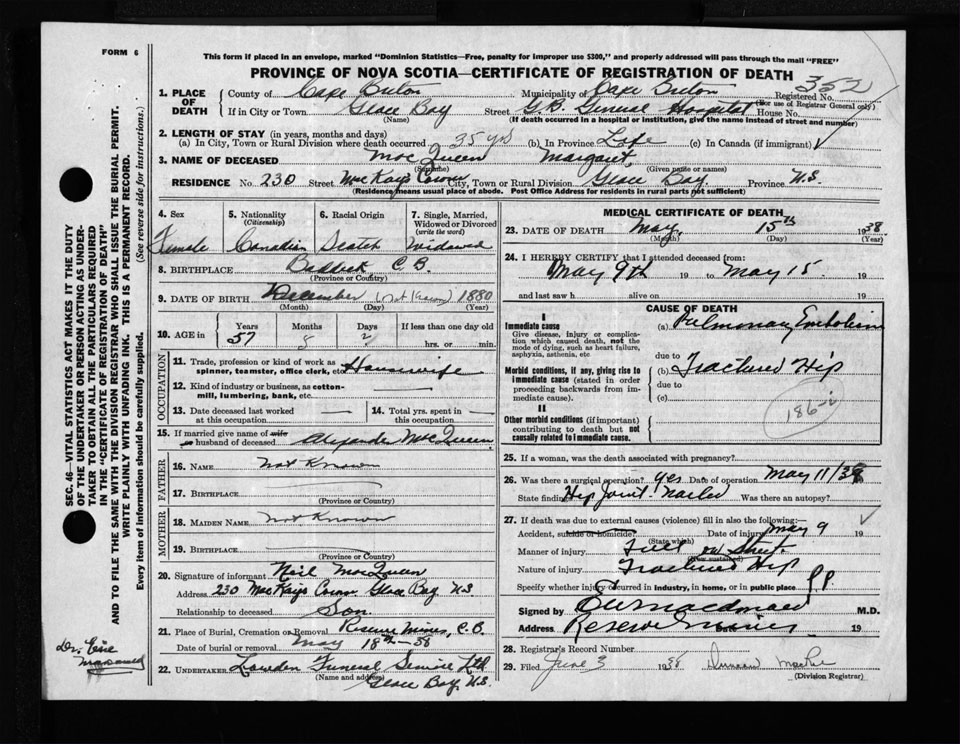 FORM 6
This form if placed in an envelope, marked "Dominion Statistics—Free, penalty for improper use $300," and properly addressed will pass through the mail "FREE"
PROVINCE OF NOVA SCOTIA—CERTIFICATE OF REGISTRATION OF DEATH
352
1. PLACE OF DEATH
County of Cape Breton Municipality of Cape Breton Registered No.
(For use of Registrar General only)
If in City or Town Glace Bay Street G.B. General Hospital House No.
(Name) (If death occurred in a hospital or institution, give the name instead of street and number)
2. LENGTH OF STAY (in years, months and days)
(a) In City, Town or Rural Division where death occurred 35 yrs (b) In Province Life (c) In Canada (if immigrant)
3. NAME OF DECEASED MacQueen Margaret
(Surname) (Given name or names)
RESIDENCE No. 230 Street MacKay's Corner City, Town or Rural Division Glace Bay Province N.S.
(Residence means usual place of abode. Post Office Address for residents in rural parts not sufficient)
4. Sex Female
5. Nationality (Citizenship) Canadian
6. Racial Origin Scotch
7. Single, Married, Widowed or Divorced (write the word) Widowed
8. BIRTHPLACE Beddeck C.B.
(Province or Country)
9. DATE OF BIRTH December (not known) 1880
(Month) (Day) (Year)
10. AGE in Years Months Days If less than one day
57 5 2 hrs. or min.
OCCUPATION
11. Trade, profession or kind of work as spinner, teamster, office clerk, etc. Housewife
12. Kind of industry or business, as cotton-mill, lumbering, bank, etc.
13. Date deceased last worked at this occupation
14. Total yrs. spent in this occupation
15. If married give name of wife or husband of deceased Alexander MacQueen
FATHER
16. NAME Not Known
17. BIRTHPLACE
(Province or Country)
MOTHER
18. MAIDEN NAME Not Known
19. BIRTHPLACE
(Province or Country)
20. Signature of informant Neil MacQueen
Address 230 MacKay's Corner Glace Bay N.S
Relationship to deceased Son
21. Place of Burial, Cremation or Removal Reserve Mines, C.B.
Date of burial or removal May 18th - 38
22. UNDERTAKER Lowden Funeral Service Ltd
(Name and address)
Glace Bay, N.S.
MEDICAL CERTIFICATE OF DEATH
23. DATE OF DEATH May 15th 1938
(Month) (Day) (Year)
24. I HEREBY CERTIFY that I attended deceased from:
May 9th 19 to May 15 19
and last saw h alive on 19
CAUSE OF DEATH
I
Immediate cause
Give disease, injury or complication which caused death, not the mode of dying, such as heart failure, asphyxia, asthenia, etc
(a) Pulmonary Embolism
due to
Morbid conditions, if any, giving rise to immediate cause (stated in order proceeding backwards from immediate cause).
(b) Fractured Hip
due to
(c)
II
Other morbid conditions (if important) contributing to death but not causally related to immediate cause.
25. If a woman, was the death associated with pregnancy?
26. Was there a surgical operation? yes Date of operation May 11/38
State findings Hip Joint Nailed Was there an autopsy?
27. If death was due to external causes (violence) fill in also the following:—
Accident, suicide or homicide? Date of injury May 9 19
(State which)
Manner of injury Fell on Street.
(How sustained)
Nature of injury Fractured Hip
Specify whether injury occurred in industry, in home, or in public place P.P.
Signed by M.D.
Address Reserve Mines 19
28. Registrar's Record Number
29. Filed June 3 1938
(Division Registrar)
SEC. 46—VITAL STATISTICS ACT MAKES IT THE DUTY OF THE UNDERTAKER OR PERSON ACTING AS UNDERTAKER TO OBTAIN ALL THE PARTICULARS REQUIRED IN THE "CERTIFICATE OF REGISTRATION OF DEATH" AND TO FILE THE SAME WITH THE DIVISION REGISTRAR WHO SHALL ISSUE THE BURIAL PERMIT.
WRITE PLAINLY WITH UNFADING INK. THIS IS A PERMANENT RECORD.
Every item of information should be carefully supplied. (See reverse side for instructions.)